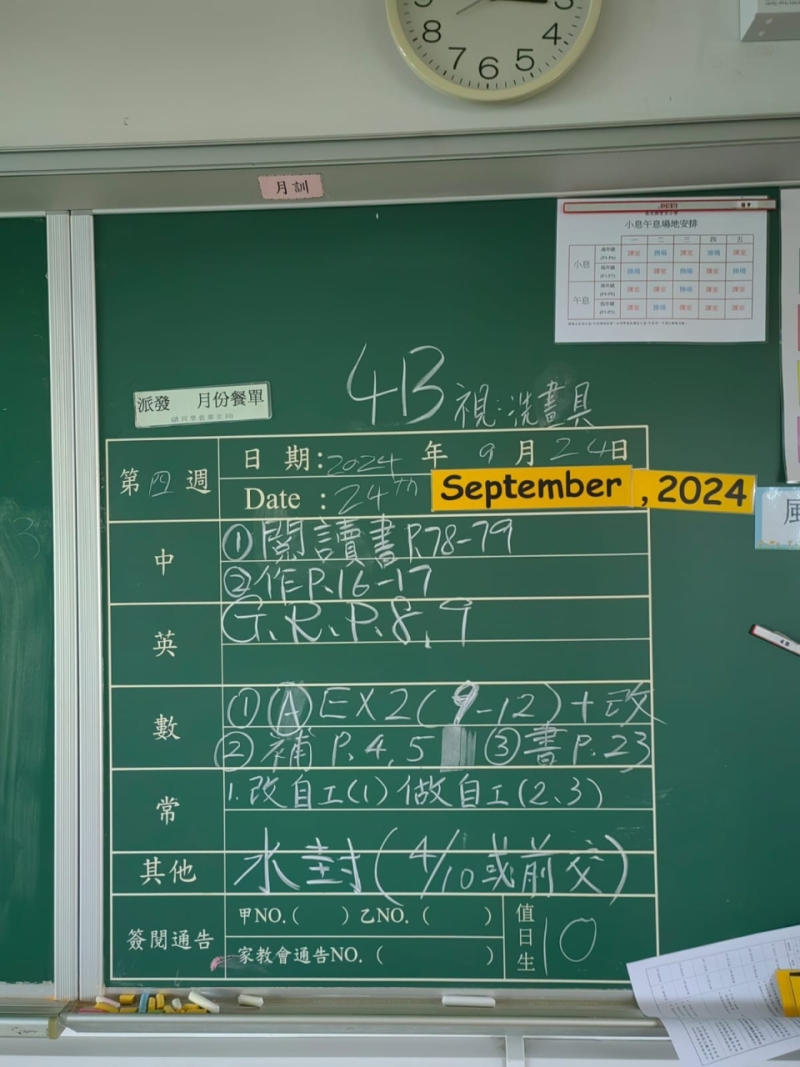 3
8 4
7 6 5
月訓
小息午息場地安排
一 二 三 四 五
小息
課室 操場 課室 操場 課室
操場 課室 操場 課室 操場
午息
課室 課室 操場 課室 課室
課室 操場 課室 課室 課室
4B 視:洗畫具
派發 月份餐單
第四週
日期:2024年9月24日
Date : 24th September , 2024
中
①閱讀書P.78-79
②作P.16-17
英
G.R.P.8,9
數
①Ⓐ EX2(9-12)+改
②補P.4,5 ③書P.23
常
1.改自工(1) 做自工(2、3)
其他
水封(4/10或前交)
簽閱通告
甲NO.( ) 乙NO.( )
家教會通告NO.( )
值日生 10
風